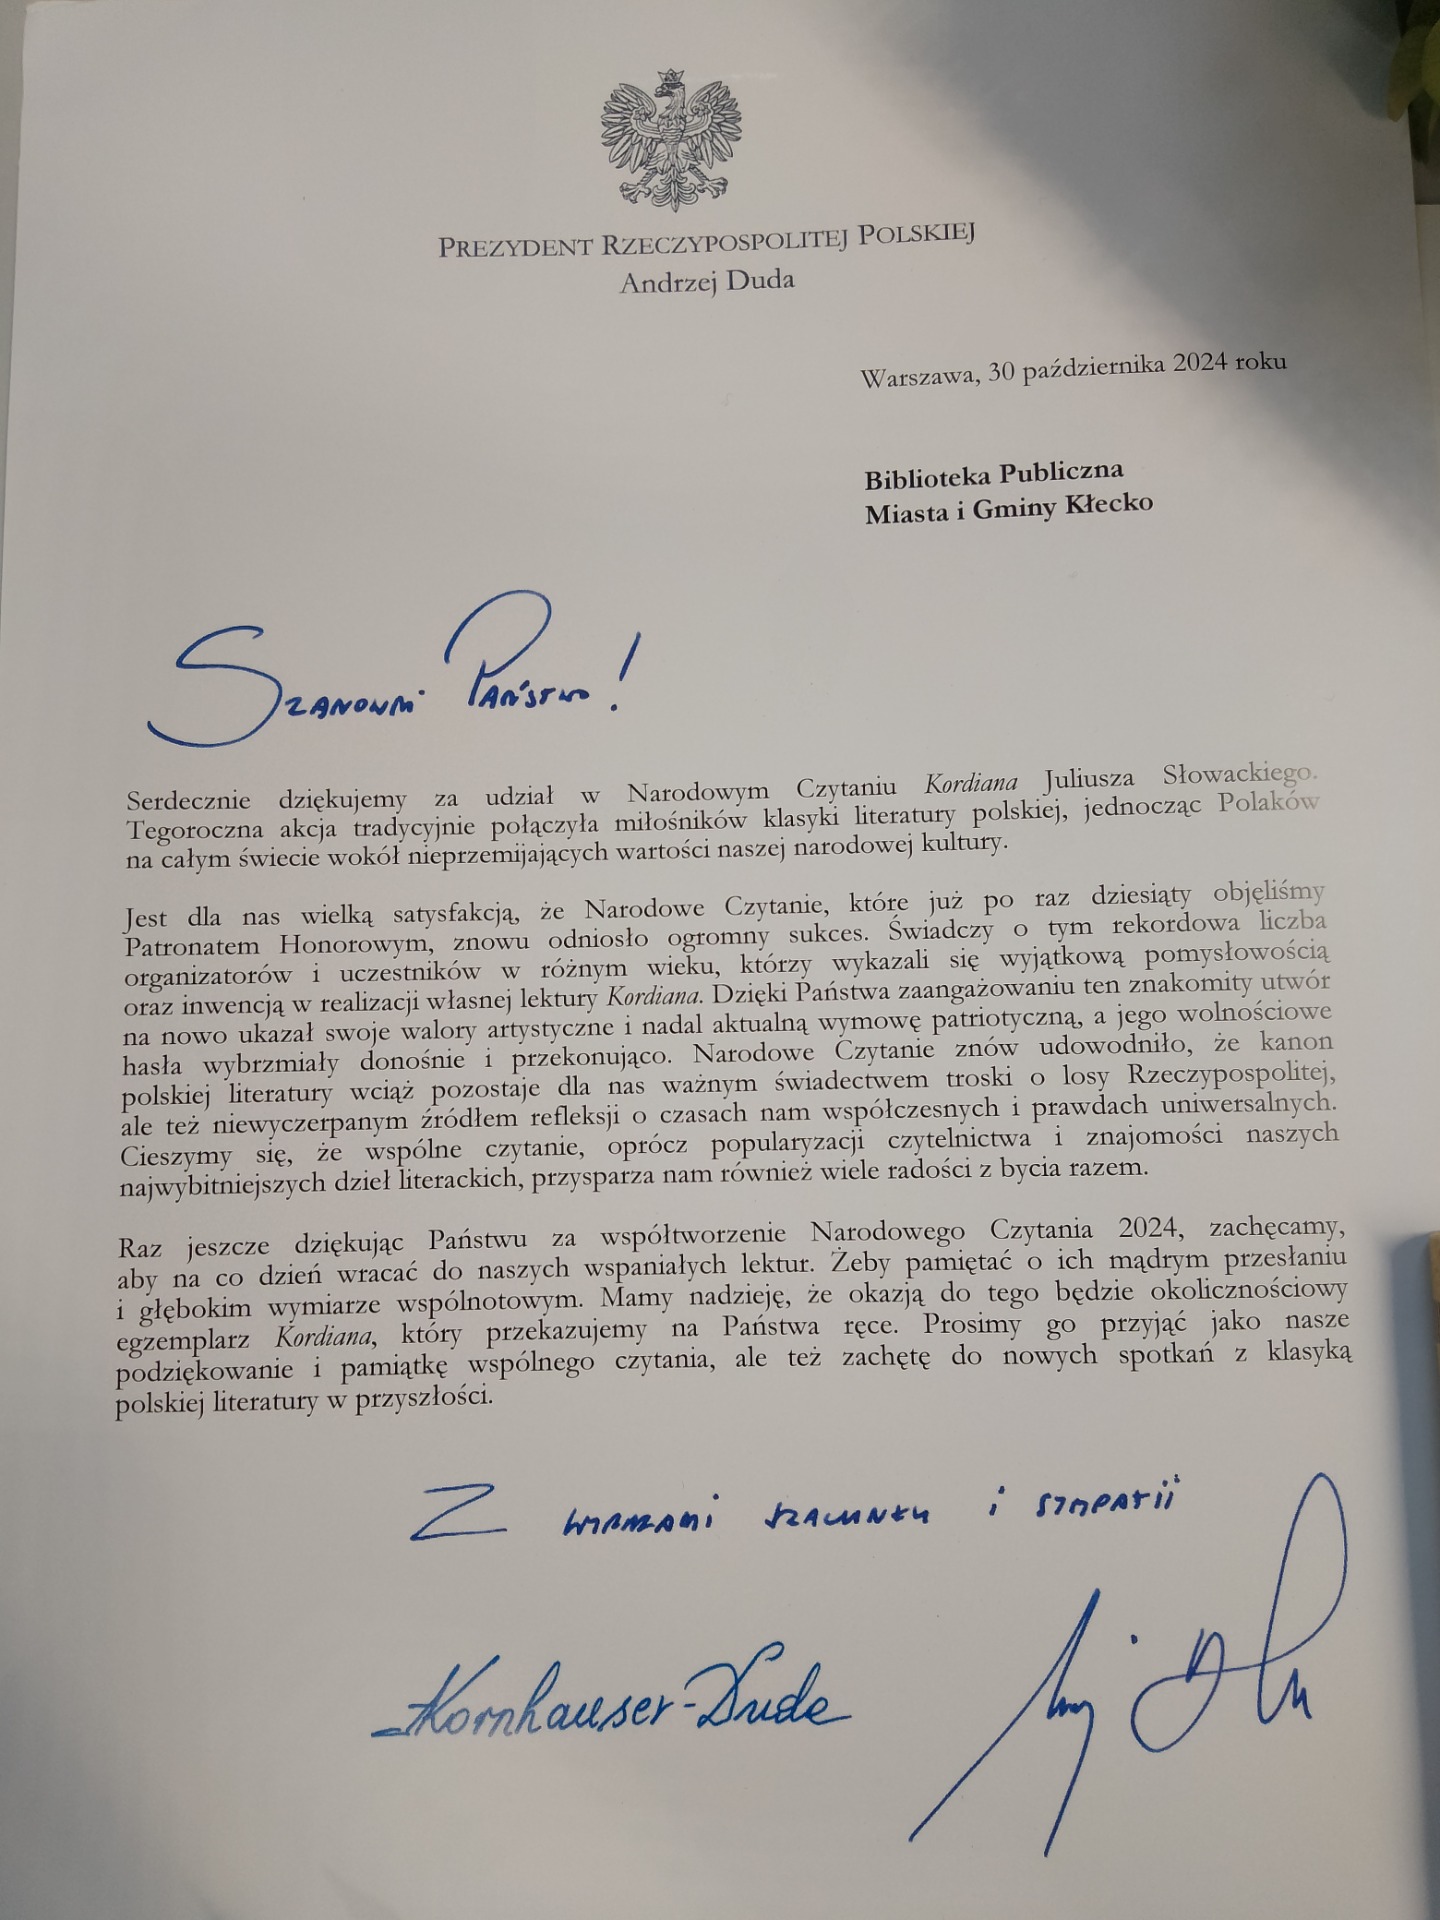 PREZYDENT RZECZYPOSPOLITEJ POLSKIEJ
Andrzej Duda
Warszawa, 30 października 2024 roku
Biblioteka Publiczna
Miasta i Gminy Kłecko
Szanowni Państwo!
Serdecznie dziękujemy za udział w Narodowym Czytaniu Kordiana Juliusza Słowackiego.
Tegoroczna akcja tradycyjnie połączyła miłośników klasyki literatury polskiej, jednocząc Polaków
na całym świecie wokół nieprzemijających wartości naszej narodowej kultury.
Jest dla nas wielką satysfakcją, że Narodowe Czytanie, które już po raz dziesiąty objęliśmy
Patronatem Honorowym, znowu odniosło ogromny sukces. Świadczy o tym rekordowa liczba
organizatorów i uczestników w różnym wieku, którzy wykazali się wyjątkową pomysłowością
oraz inwencją w realizacji własnej lektury Kordiana. Dzięki Państwa zaangażowaniu ten znakomity utwór
na nowo ukazał swoje walory artystyczne i nadal aktualną wymowę patriotyczną, a jego wolnościowe
hasła wybrzmiały donośnie i przekonująco. Narodowe Czytanie znów udowodniło, że kanon
polskiej literatury wciąż pozostaje dla nas ważnym świadectwem troski o losy Rzeczypospolitej,
ale też niewyczerpanym źródłem refleksji o czasach nam współczesnych i prawdach uniwersalnych.
Cieszymy się, że wspólne czytanie, oprócz popularyzacji czytelnictwa i znajomości naszych
najwybitniejszych dzieł literackich, przysparza nam również wiele radości z bycia razem.
Raz jeszcze dziękując Państwu za współtworzenie Narodowego Czytania 2024, zachęcamy,
aby na co dzień wracać do naszych wspaniałych lektur. Żeby pamiętać o ich mądrym przesłaniu
i głębokim wymiarze wspólnotowym. Mamy nadzieję, że okazją do tego będzie okolicznościowy
egzemplarz Kordiana, który przekazujemy na Państwa ręce. Prosimy go przyjąć jako nasze
podziękowanie i pamiątkę wspólnego czytania, ale też zachętę do nowych spotkań z klasyką
polskiej literatury w przyszłości.
Z wyrazami szacunku i sympatii
Kornhauser-Duda